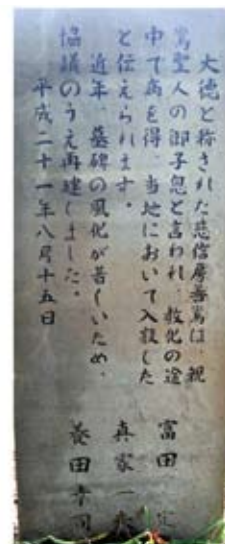 大徳と称された慈信房善鸞は、親
鸞聖人の御子息と言われ、教化の途
中で病を得、当地において入寂した
と伝えられます。
近年、墓碑の風化が著しいため、
協議のうえ再建しました。
平成二十一年八月十五日
富田
真家一
養田幸司